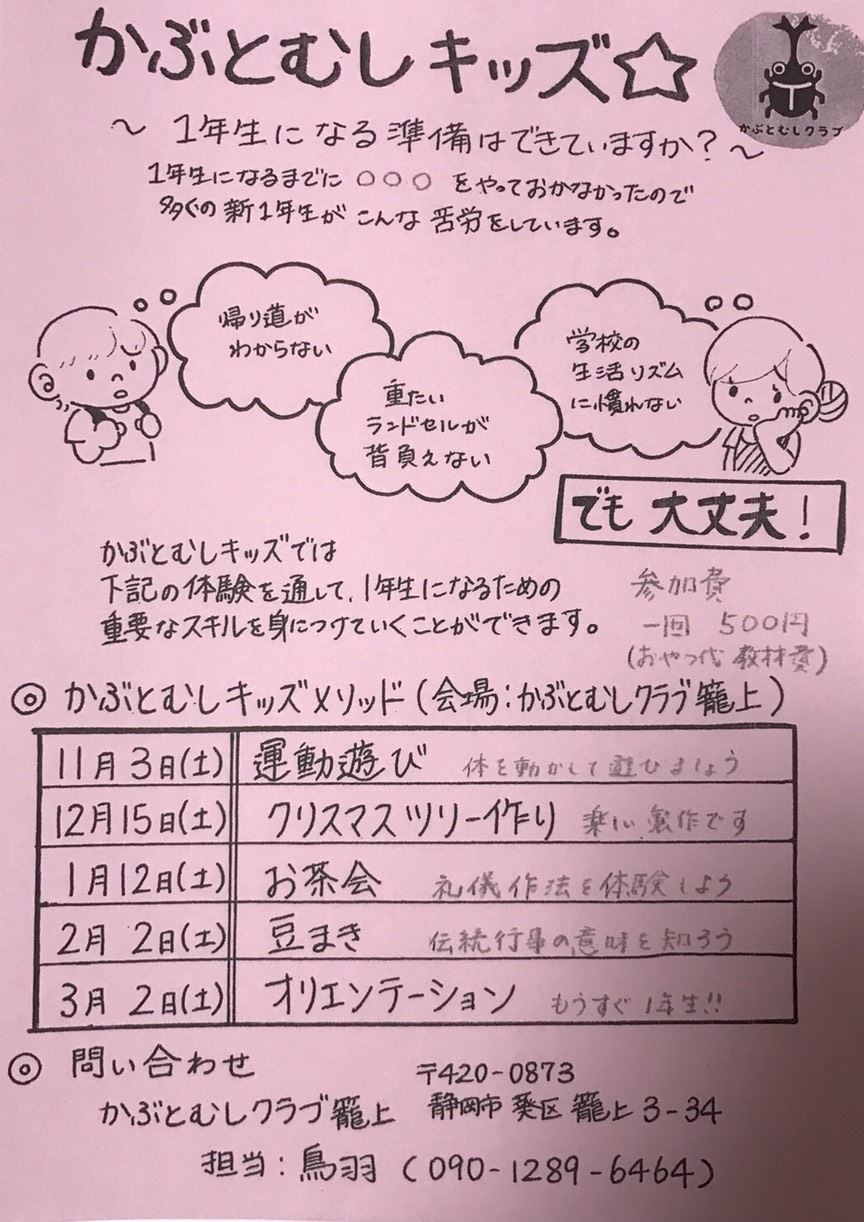 かぶとむしキッズ☆
かぶとむしクラブ
～ 1年生になる準備はできていますか？～
1年生になるまでに ○○○ をやっておかなかったので
多くの新1年生がこんな苦労をしています。
帰り道が
わからない
重たい
ランドセルが
背負えない
学校の
生活リズム
に慣れない
でも 大丈夫！
かぶとむしキッズでは
下記の体験を通して、1年生になるための
重要なスキルを身につけていくことができます。
参加費
一回 500円
(おやつ代 教材費)
◎ かぶとむしキッズメソッド(会場：かぶとむしクラブ籠上)
11月 3日(土) 運動遊び 体を動かして遊びましょう
12月15日(土) クリスマスツリー作り 楽しい製作です
1月12日(土) お茶会 礼儀作法を体験しよう
2月 2日(土) 豆まき 伝統行事の意味を知ろう
3月 2日(土) オリエンテーション もうすぐ1年生!!
◎ 問い合わせ
かぶとむしクラブ籠上
〒420-0873
静岡市葵区籠上3-34
担当：鳥羽 (090-1289-6464)